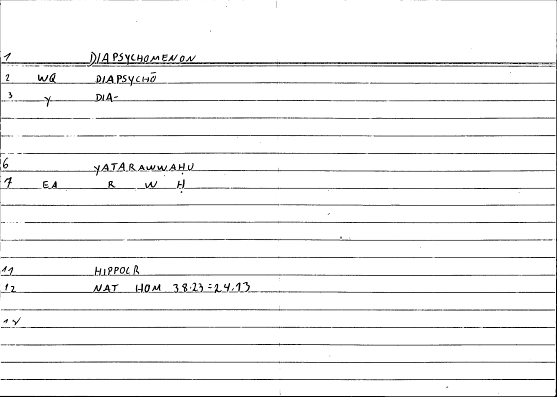 1 DIAPSYCHOMENON
2 WQ DIAPSYCHŌ
3 Y DIA-
6 YATARAWWAḤU
7 EA R W Ḥ
11 HIPPOCR
12 NAT HOM 38.23=24.13
14